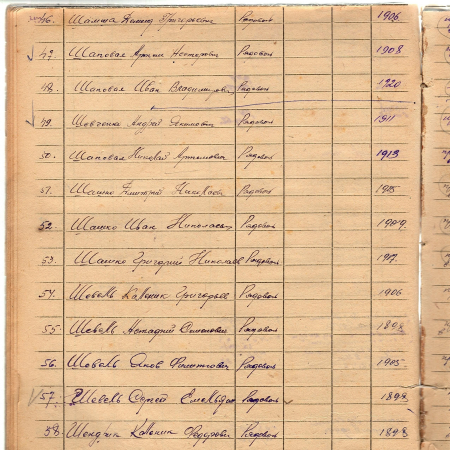 46. Григорьевич Рядовой 1906
47. Шаповал Нестерович Рядовой 1908
48. Шаповал Иван Владимирович Рядовой 1920
49. Шевченко Андрей Рядовой 1911
50. Шаповал Николай Артемович Рядовой 1913
51. Шашко Дмитрий Рядовой 1905
52. Шашко Иван Николаевич Рядовой 1909.
53. Шашко Григорий Николаев Рядовой
54. Шевель Каленик Григорьев Рядовой 1906
55. Шевель Рядовой 1898
56. Шевель Яков Рядовой 1905.
57. Шевель Сергей Рядовой 1898
58. Каленик Федорович Рядовой 1898